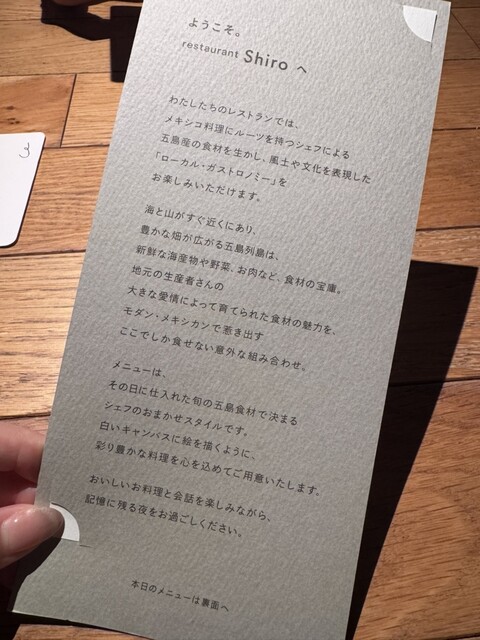 ようこそ。
restaurant Shiro へ
わたしたちのレストランでは、
メキシコ料理にルーツを持つシェフによる
五島産の食材を生かし、風土や文化を表現した
「ローカル・ガストロノミー」を
お楽しみいただけます。
海と山がすぐ近くにあり、
豊かな畑が広がる五島列島は、
新鮮な海産物や野菜、お肉など、食材の宝庫。
地元の生産者さんの
大きな愛情によって育てられた食材の魅力を、
モダン・メキシカンで惹き出す
ここでしか食せない意外な組み合わせ。
メニューは、
その日に仕入れた旬の五島食材で決まる
シェフのおまかせスタイルです。
白いキャンバスに絵を描くように、
彩り豊かな料理を心を込めてご用意いたします。
おいしいお料理と会話を楽しみながら、
記憶に残る夜をお過ごしください。
本日のメニューは裏面へ
3